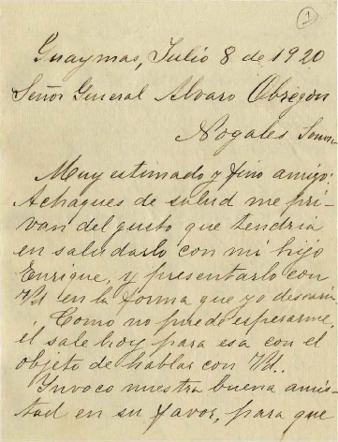 1
Guaymas, Julio 8 de 1920
Señor General Alvaro Obregón
Nogales Sonora
Muy estimado y fino amigo:
Achaques de salud me pri-
van del gusto que tendria
en saludarlo con mi hijo
Enrique, y presentarlo con
Vd en la forma que yo desearia.
Como no puede esperarme,
él sale hoy para esa con el
objeto de hablar con Vd.
Invoco nuestra buena amis-
tad en su favor, para que